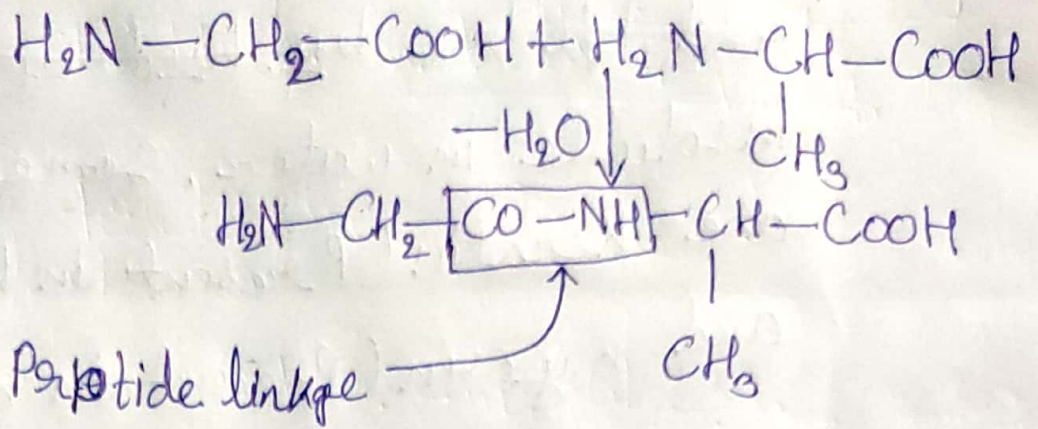 H₂N—CH₂—COOH + H₂N—CH—COOH
CH₃
—H₂O
H₂N—CH₂—CO—NH—CH—COOH
CH₃
Peptide linkge